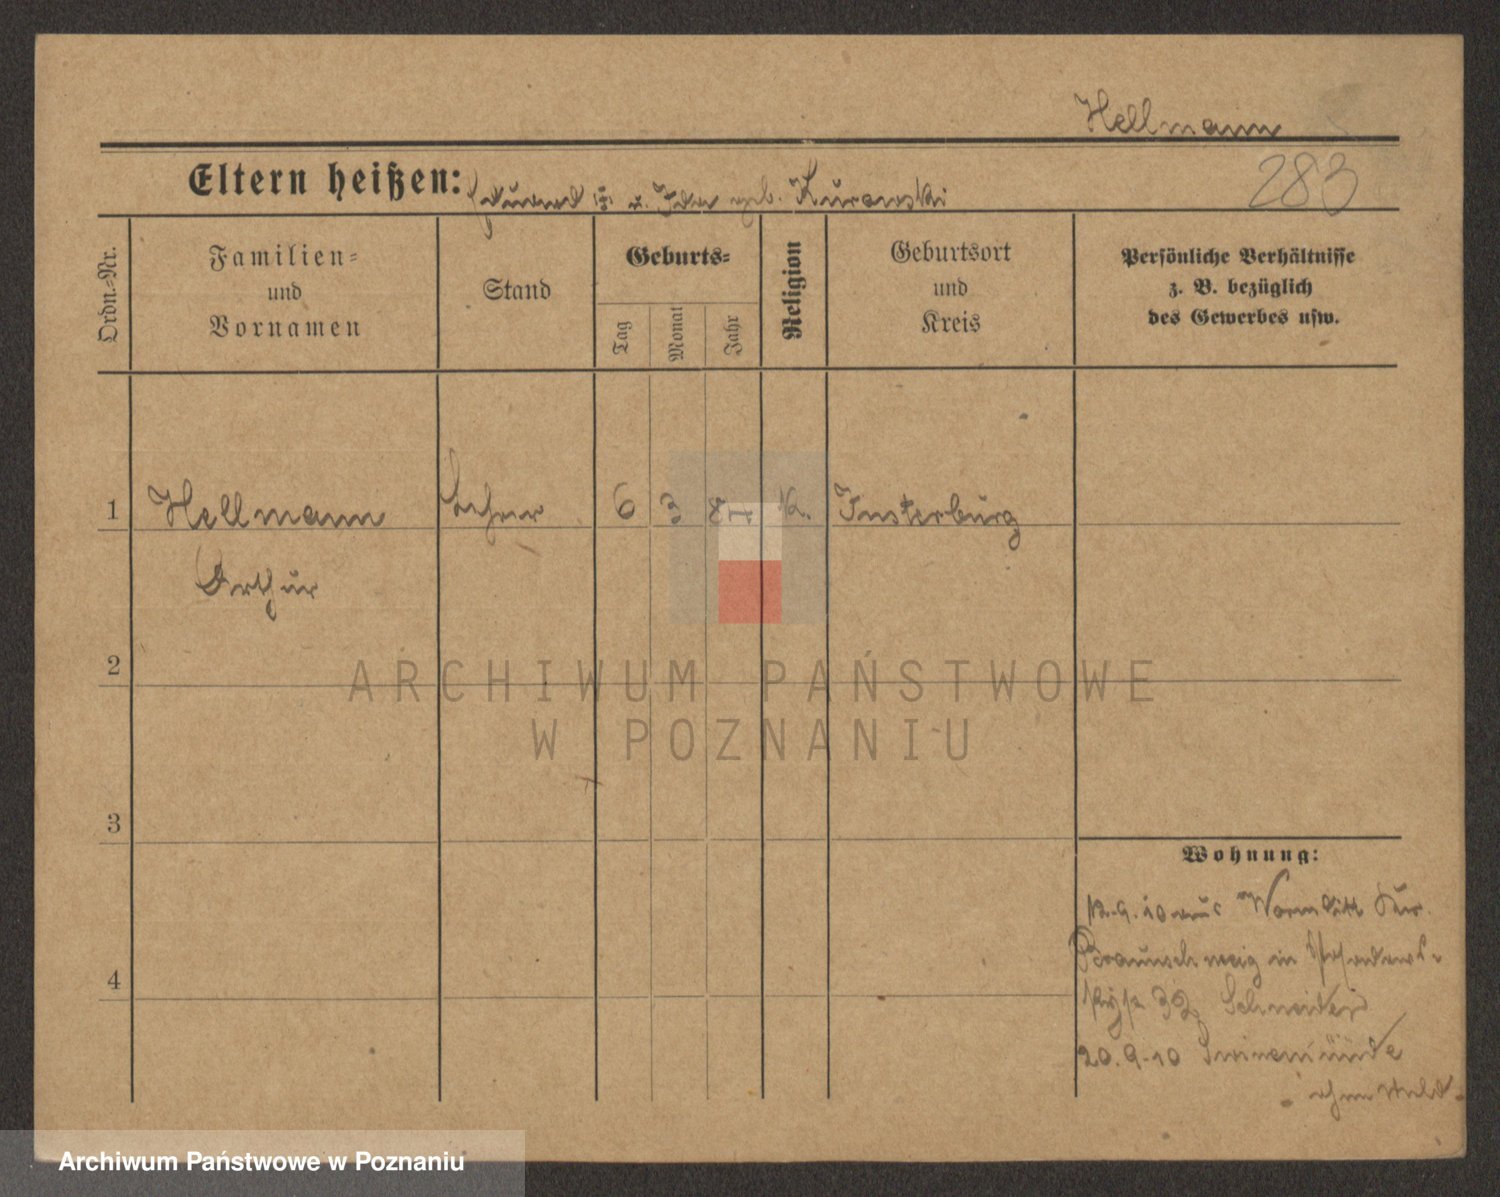 Hellmann
283
Eltern heißen: Eduard u. Ida geb. Kuranski
Ordn.-Nr.
Familien- und Vornamen
Stand
Geburts-
Tag
Monat
Jahr
Religion
Geburtsort und Kreis
Persönliche Verhältnisse z. B. bezüglich des Gewerbes usw.
1 Hellmann Lehrer 6 3 87 K. Insterburg
Arthur
2
ARCHIWUM PAŃSTWOWE
W POZNANIU
3
Wohnung:
12.9.10 aus Wormditt
Braunschweig in
4
32 Schneider
20.9.10 Swinemünde
Archiwum Państwowe w Poznaniu